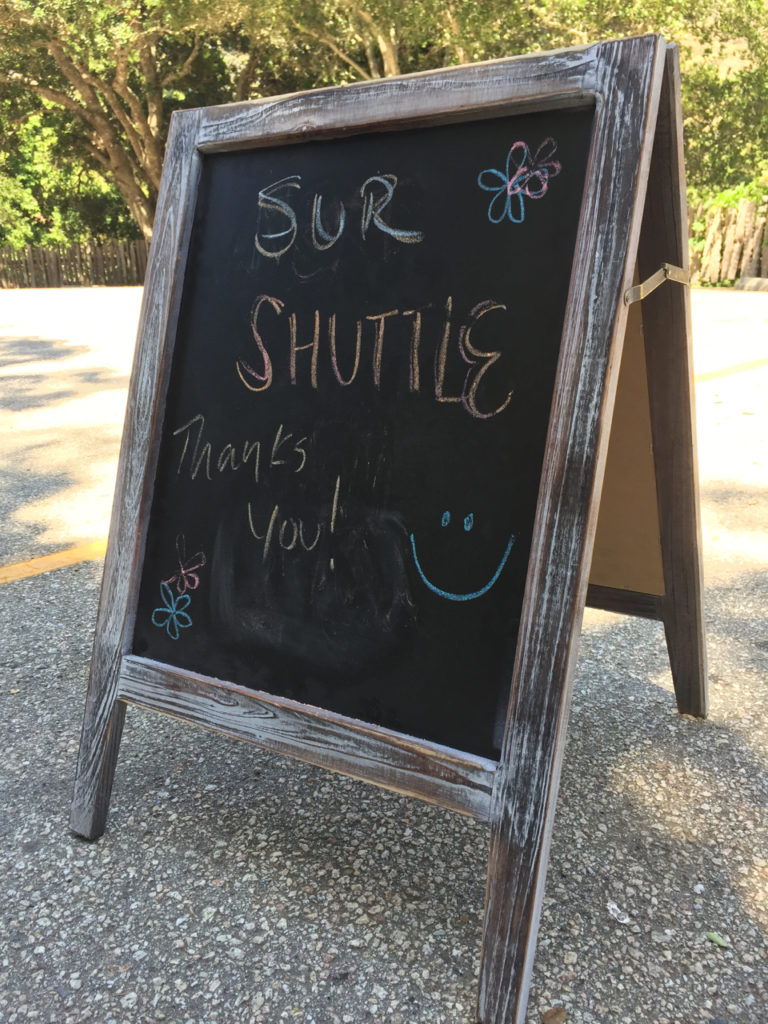 SUR
SHUTTLE
Thanks
You!